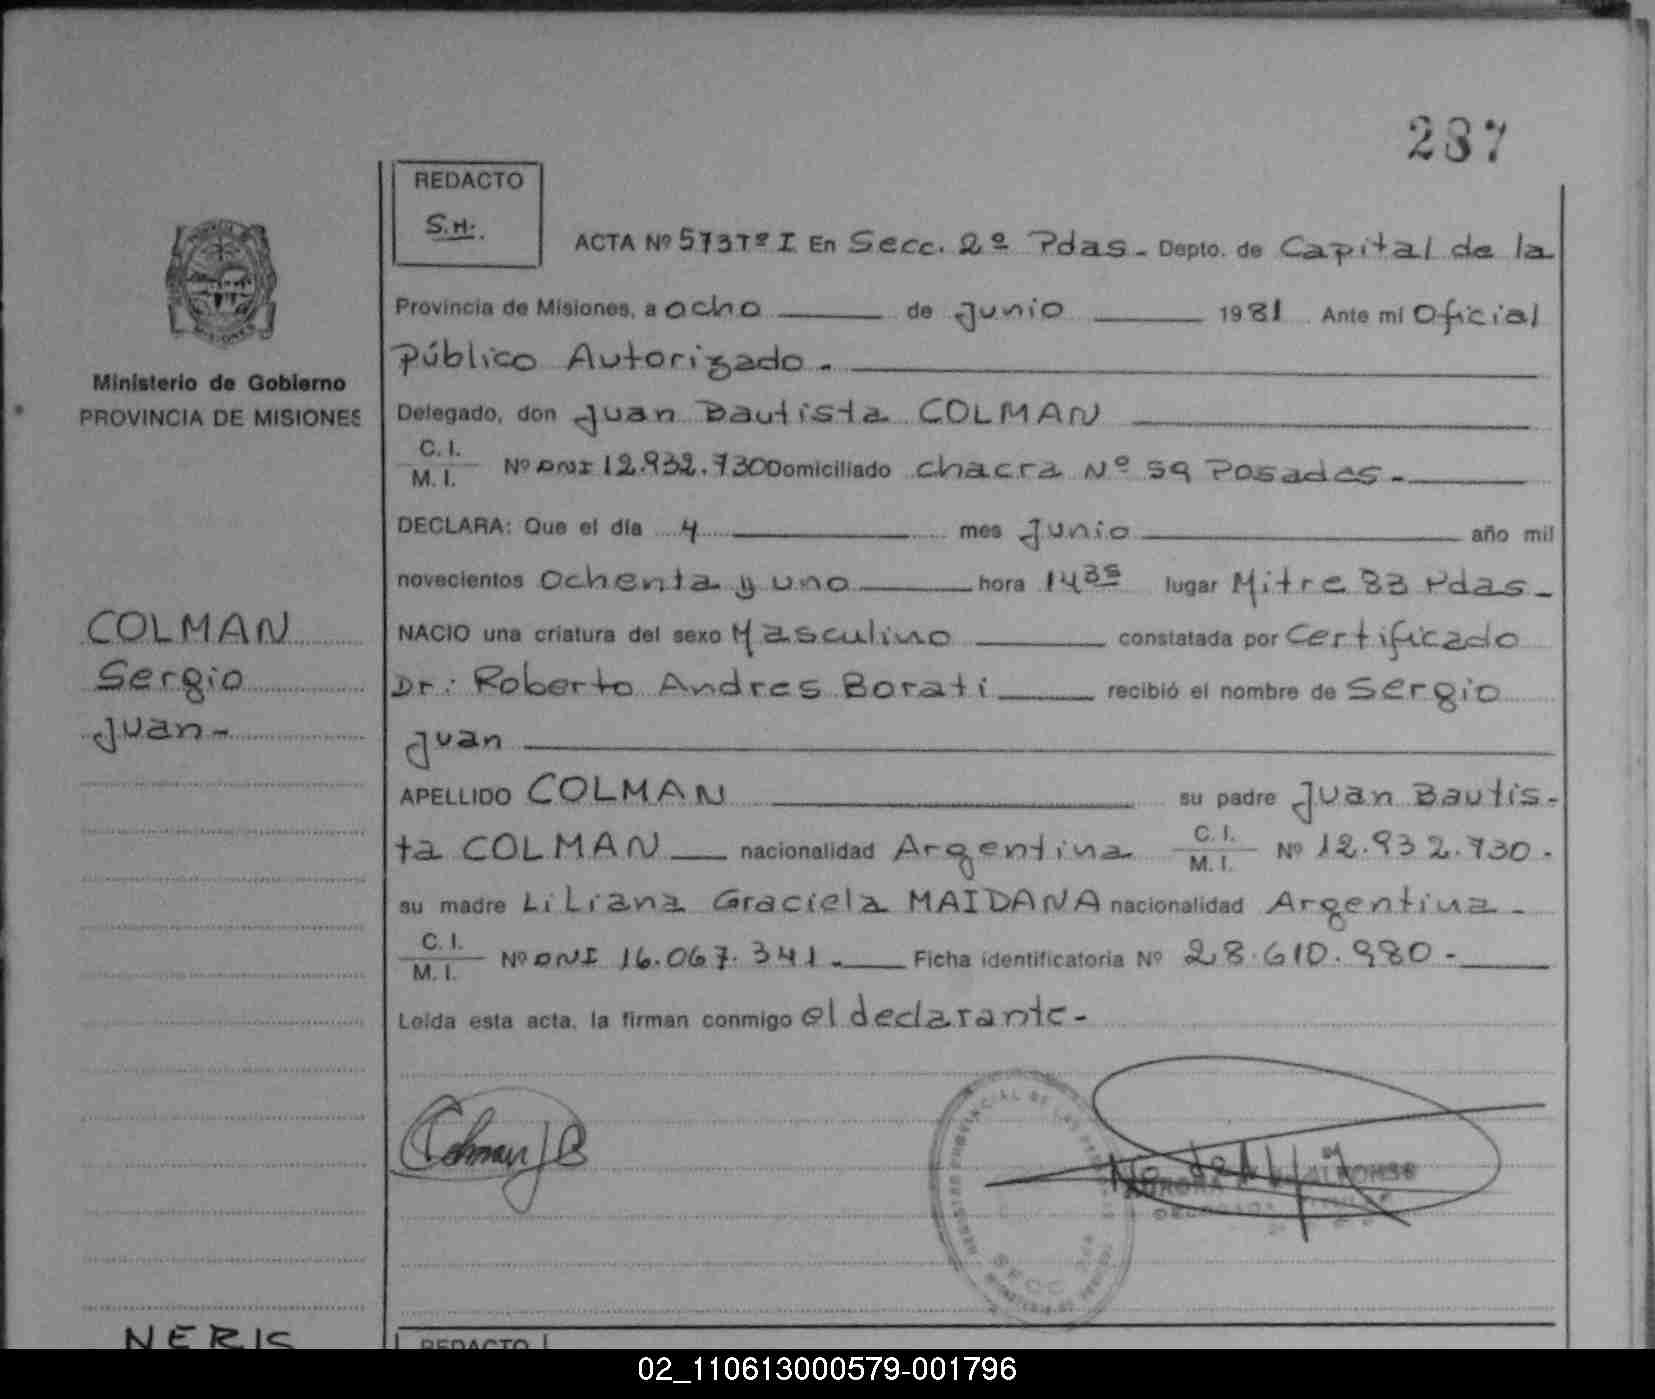 237
REDACTO
S.H.
ACTA Nº 573 Tº I En Secc. 2º Pdas. Depto. de Capital de la
Provincia de Misiones, a ocho de Junio 1981 Ante mi Oficial
Público Autorizado.
Delegado, don Juan Bautista COLMAN
C. I.
M. I. Nº DNI 12.932.730 Domiciliado Chacra Nº 59 Posadas.
DECLARA: Que el día 4 mes Junio año mil
novecientos Ochenta y uno hora 14 35 lugar Mitre 33 Pdas.
NACIO una criatura del sexo Masculino constatada por Certificado
Dr: Roberto Andres Borati recibió el nombre de Sergio
Juan
APELLIDO COLMAN su padre Juan Bautis-
ta COLMAN nacionalidad Argentina C. I. M. I. Nº 12.932.730.
su madre Liliana Graciela MAIDANA nacionalidad Argentina.
C. I.
M. I. Nº DNI 16.067.341. Ficha identificatoria Nº 28.610.980.
Leída esta acta, la firman conmigo el declarante-
Colman J B
ALFONSO
SECC
Ministerio de Gobierno
PROVINCIA DE MISIONES
COLMAN
Sergio
Juan-
NERIS
REDACTO
02_110613000579-001796